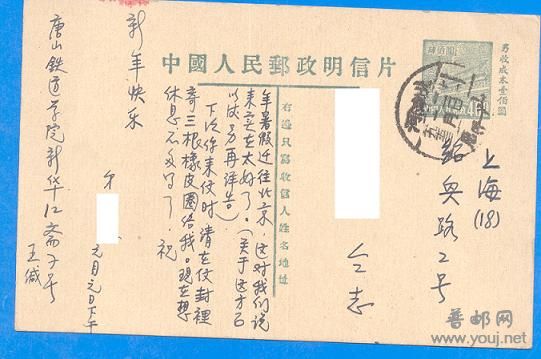 中國人民郵政明信片
另收成本壹佰圓
右邊只寫收信人姓名地址
上海(18)
紹興路2号
仝志
年暑假迁往北京，这对我们说
来实在太好了。(关于这方面
以后另再详告)
下次你来信时请在信封裡
寄三根橡皮圈给我。现在想
休息不多写了。祝
新年快乐
弟
元月元日下午
唐山鉄道学院新华仁斋了号
王缄
普邮网
www.youj.net